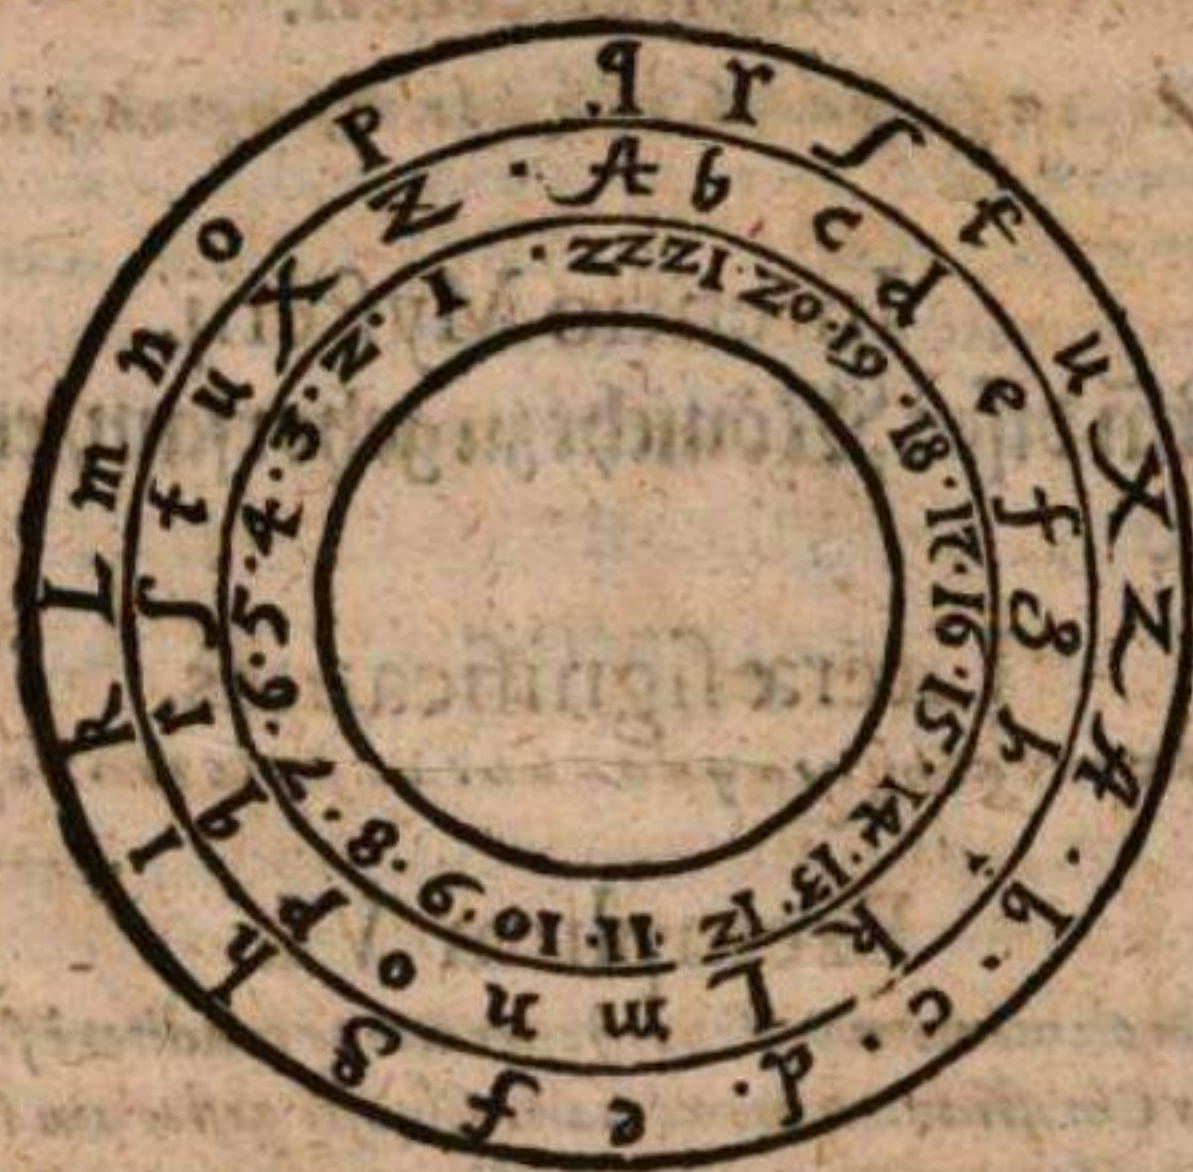 q r ſ t u X Z A · b · c · d · e f g h I K L m n o P
A b c d e f g h i k L m n o p q r ſ t u X Z ·
22 21 · 20 · 19 · 18 · 17 · 16 · 15 · 14 · 13 · 12 11 · 10 · 9 · 8 · 7 · 6 · 5 · 4 · 3 · 2 · 1 ·